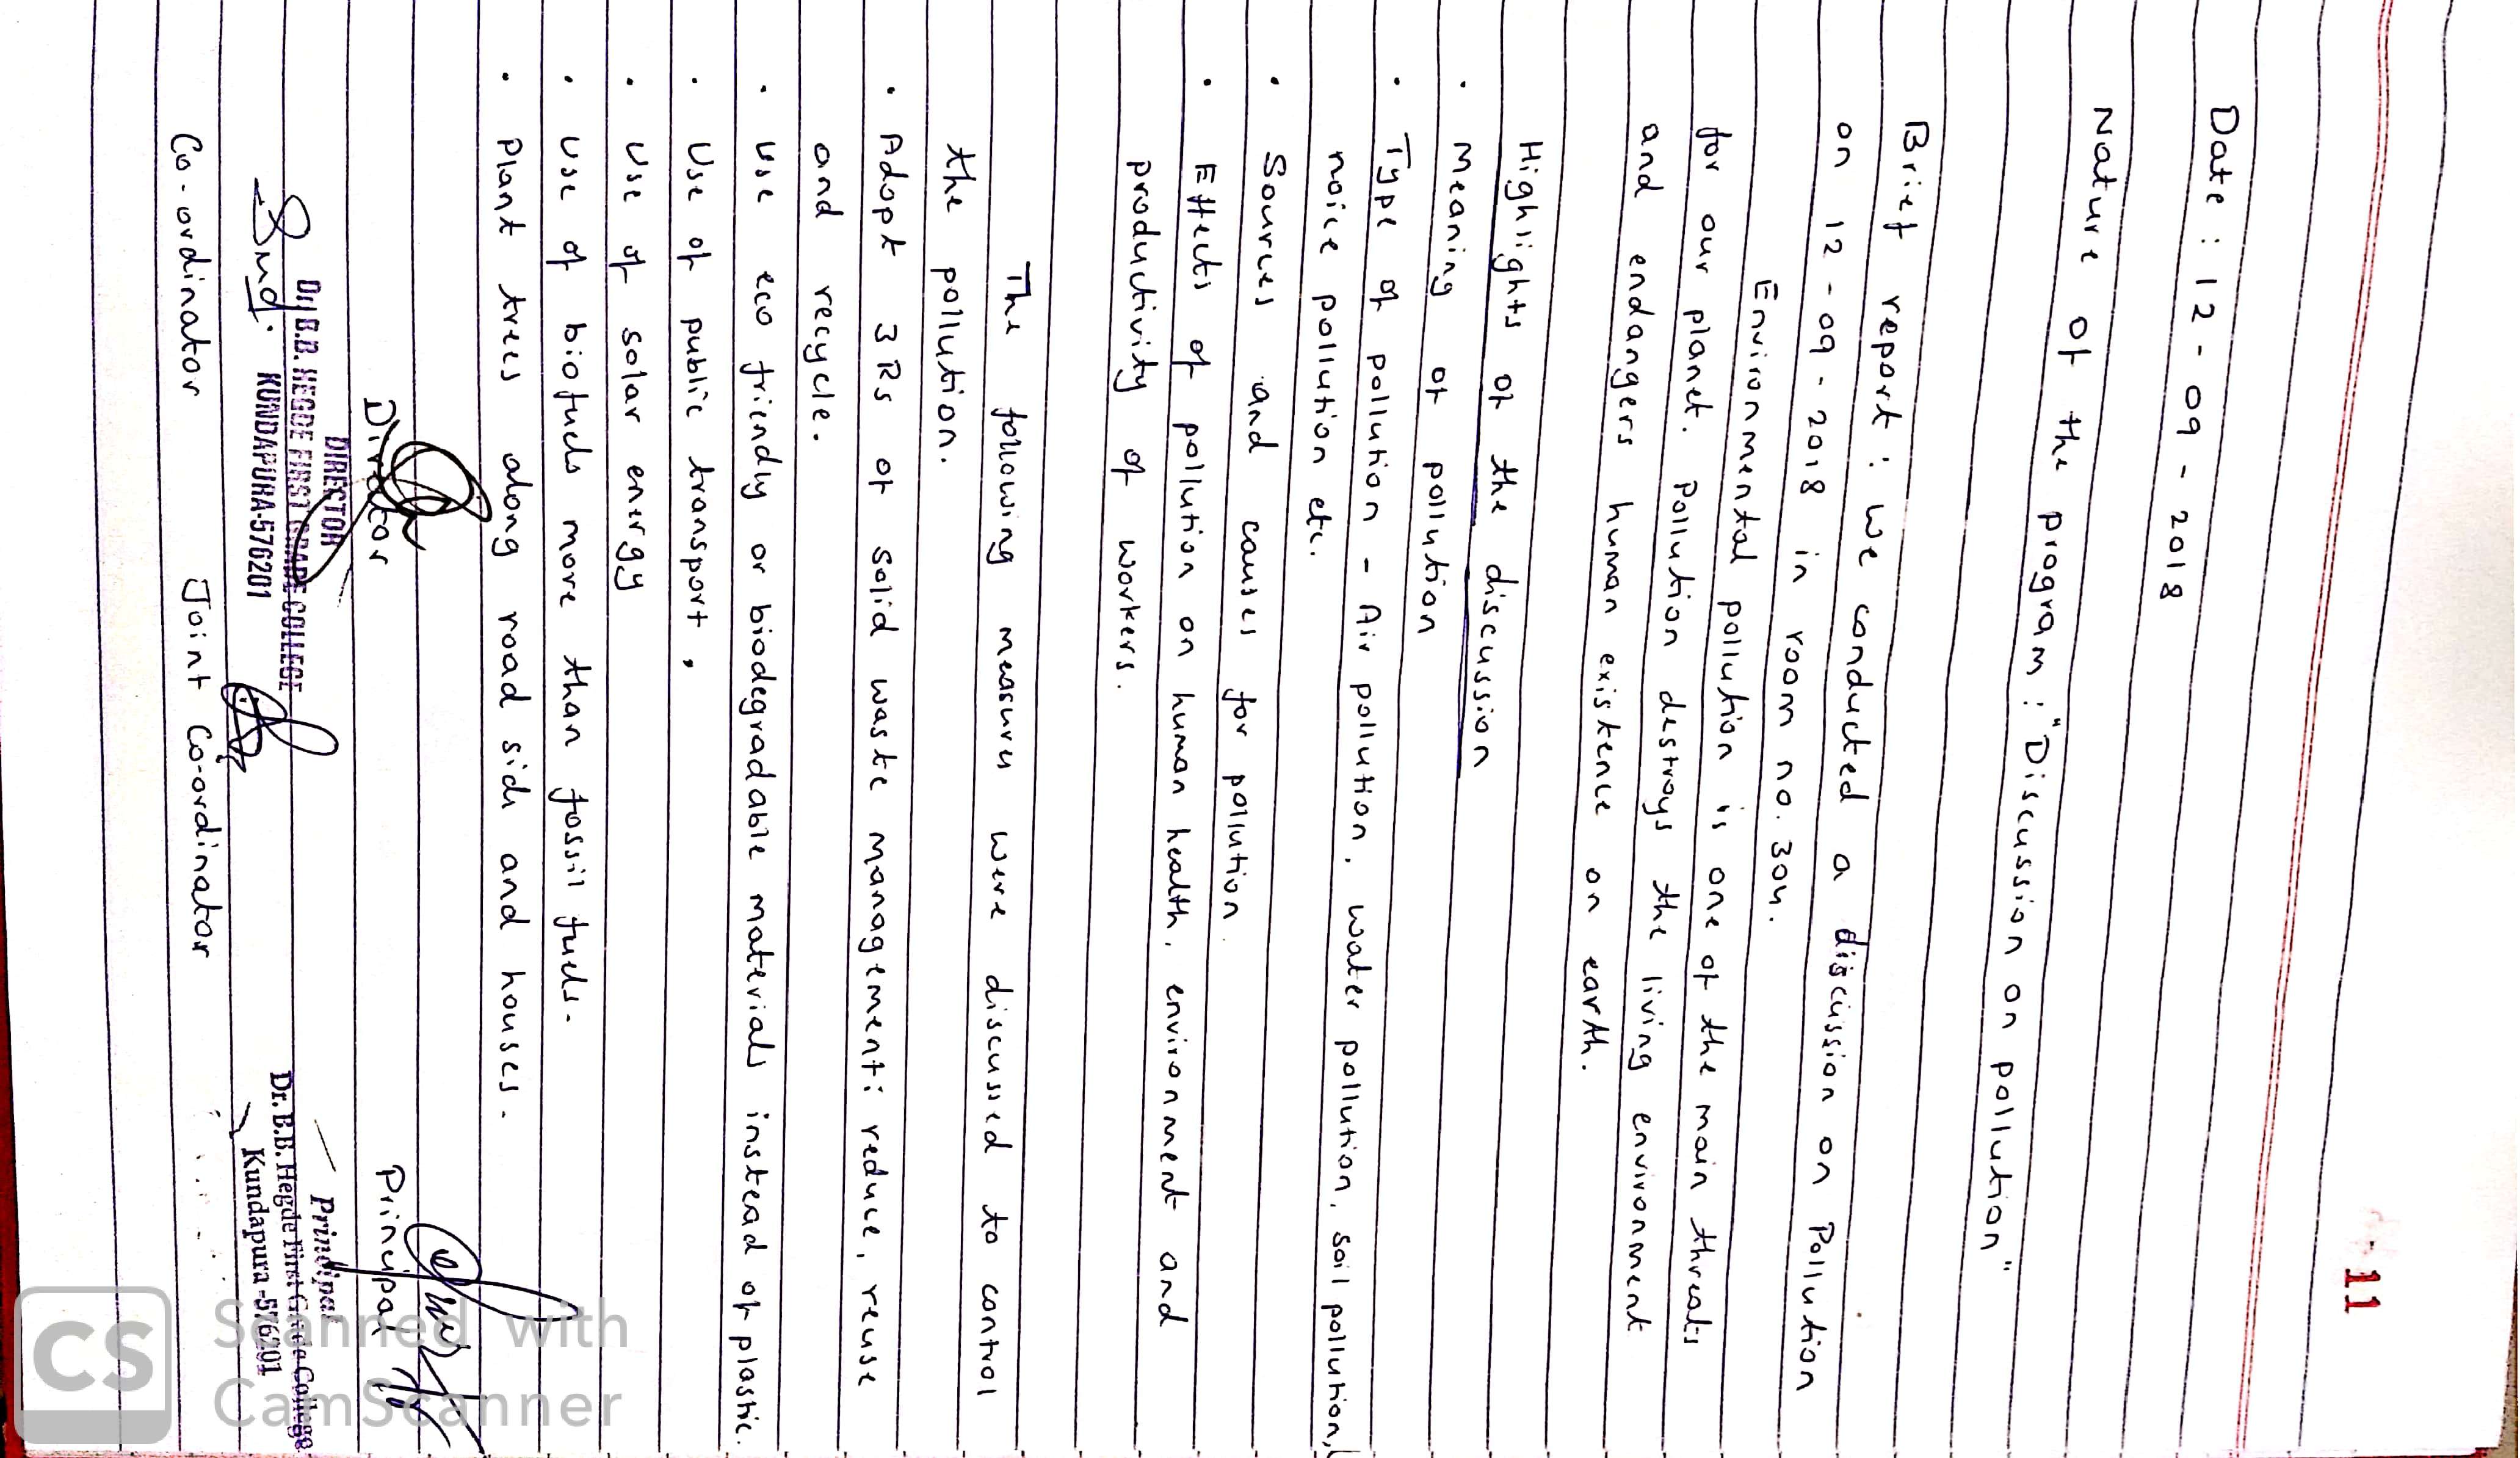 11
Date : 12 - 09 - 2018
Nature of the program : "Discussion on pollution"
Brief report : We conducted a discussion on Pollution
on 12 - 09 - 2018 in room no. 304.
Environmental pollution is one of the main threats
for our planet. Pollution destroys the living environment
and endangers human existence on earth.
Highlights of the discussion
• Meaning of pollution
• Type of pollution - Air pollution, water pollution, soil pollution,
noice pollution etc.
• Sources and causes for pollution.
• Effects of pollution on human health, environment and
productivity of workers.
The following measures were discussed to control
the pollution.
• Adopt 3Rs of solid waste management: reduce, reuse
and recycle.
• Use eco friendly or biodegradable materials instead of plastic.
• Use of public transport.
• Use of solar energy
• Use of biofuels more than fossil fuels.
• Plant trees along road side and houses.
Director Principal
DIRECTOR Principal
Dr. B.B. HEGDE FIRST GRADE COLLEGE Dr. B.B. Hegde First Grade College
KUNDAPURA-576201 Kundapura -576201
Co-ordinator Joint Co-ordinator
CS Scanned with
CamScanner